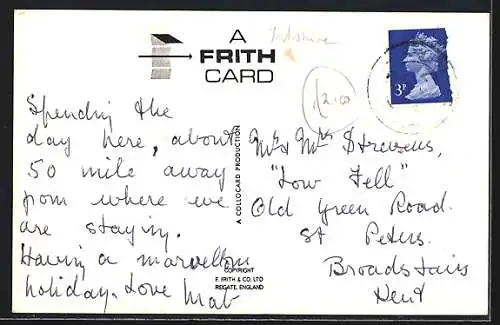 A
FRITH
CARD
3P
£2.00
Spending the
day here, about
50 mile away
from where we
are staying.
Having a marvellous
holiday. Love Mab
A COLLOCARD PRODUCTION
COPYRIGHT
F. FRITH & CO. LTD
REIGATE, ENGLAND
Mr & Mrs Stevens,
"Low Fell"
Old Green Road.
St Peters.
Broadstairs
Kent